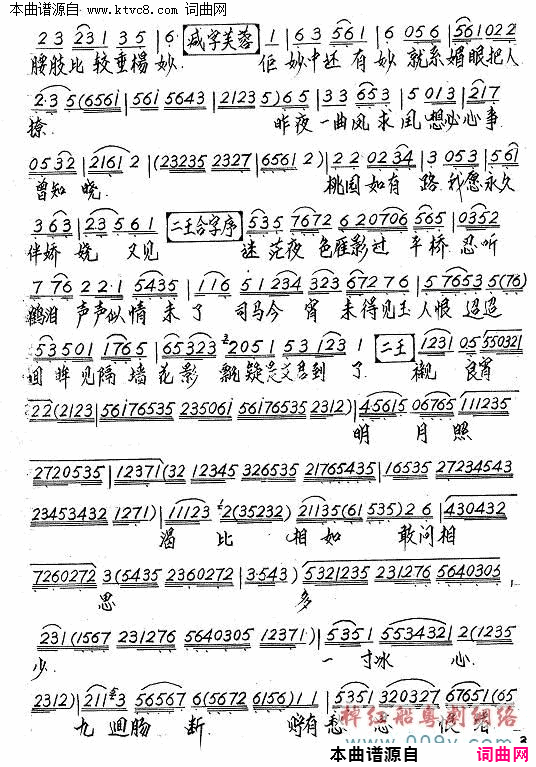 本曲谱源自 www.ktvc8.com 词曲网
2 3 2 3 1 3 5 | 6. 减字芙蓉 1 | 6 3 5 6 1 | 6 0 5 6 | 5 6 1 0 2 2
腰肢比较垂杨妙. 佢妙中还有妙就系媚眼把人
2. 3 5 (6 5 6 1 | 5 6 1 5 6 4 3 | 2 1 2 3 5) 6 5 | 3 3 6 5 3 | 5 0 1 3 | 2 1 7
撩. 昨夜一曲凤求凰想必心事
0 5 3 2 | 2 1 6 1 2 | (2 3 2 3 5 2 3 2 7 | 6 5 6 1 2) | 2 2 0 2 3 4 | 3 0 5 3 | 5 6 1
曾知晓. 桃园如有路我愿永久
3 6 3 | 2 3 5 6 1 二王合字序 | 5 3 5 7 6 7 2 6 2 0 7 0 6 | 5 6 5 | 0 3 5 2
伴娇娆 又见 迷茫夜色雁影过平桥忍听
7 7 6 2 2. 1 5 4 3 5 | 1 1 6 5 1 2 3 4 3 2 3 6 7 2 7 6 | 5 7 6 5 3 5 (7 6)
鹤泪声声似情未了司马今宵未得见玉人恨迢迢
5 3 5 0 1 1 7 6 5 | 6 5 3 2 3 2 0 5 1 5 3 1 2 3 1 二王 | 1 2 3 1 0 5 5 5 0 3 2 1
回眸见隔墙花影飘疑是文君到了. 衬良宵
2 2 (2 1 2 3 | 5 6 1 7 6 5 3 5 2 3 5 0 6 1 5 6 1 7 6 5 3 5 2 3 1 2) | 4 5 6 1 5 0 6 7 6 5 1 1 1 2 3 5
明月照
2 7 2 0 5 3 5 | 1 2 3 7 1 (3 2 1 2 3 4 5 3 2 6 5 3 5 2 1 7 6 5 4 3 5 | 1 6 5 3 5 2 7 2 3 4 5 4 3
2 3 4 5 3 4 3 2 1 2 7 1) | 1 1 1 2 3 2 (3 5 2 3 2) | 2 1 1 3 5 (6 1 5 3 5) 2 6 | 4 3 0 4 3 2
渴比相如敢问相
7 2 6 0 2 7 2 3 (5 4 3 5 2 3 6 0 2 7 2 | 3. 5 4 3) | 5 3 2 1 2 3 5 2 3 1 2 7 6 5 6 4 0 3 0 5
思多
2 3 1 (1 5 6 7 2 3 1 2 7 6 5 6 4 0 3 0 5 1 2 3 7 1) | 5 3 5 1 5 5 3 4 3 2 | 2 (1 2 3 5
少. 一寸冰心.
2 3 1 2) | 2 1 1 3 5 6 5 6 7 6 (5 6 7 2 6 1 5 6) 1 | 5 3 5 1 3 2 0 3 2 7 6 7 6 5 1 (6 5
九迴肠断. 贮有
梓红船粤剧网络
www.009y.com 3
本曲谱源自 词曲网